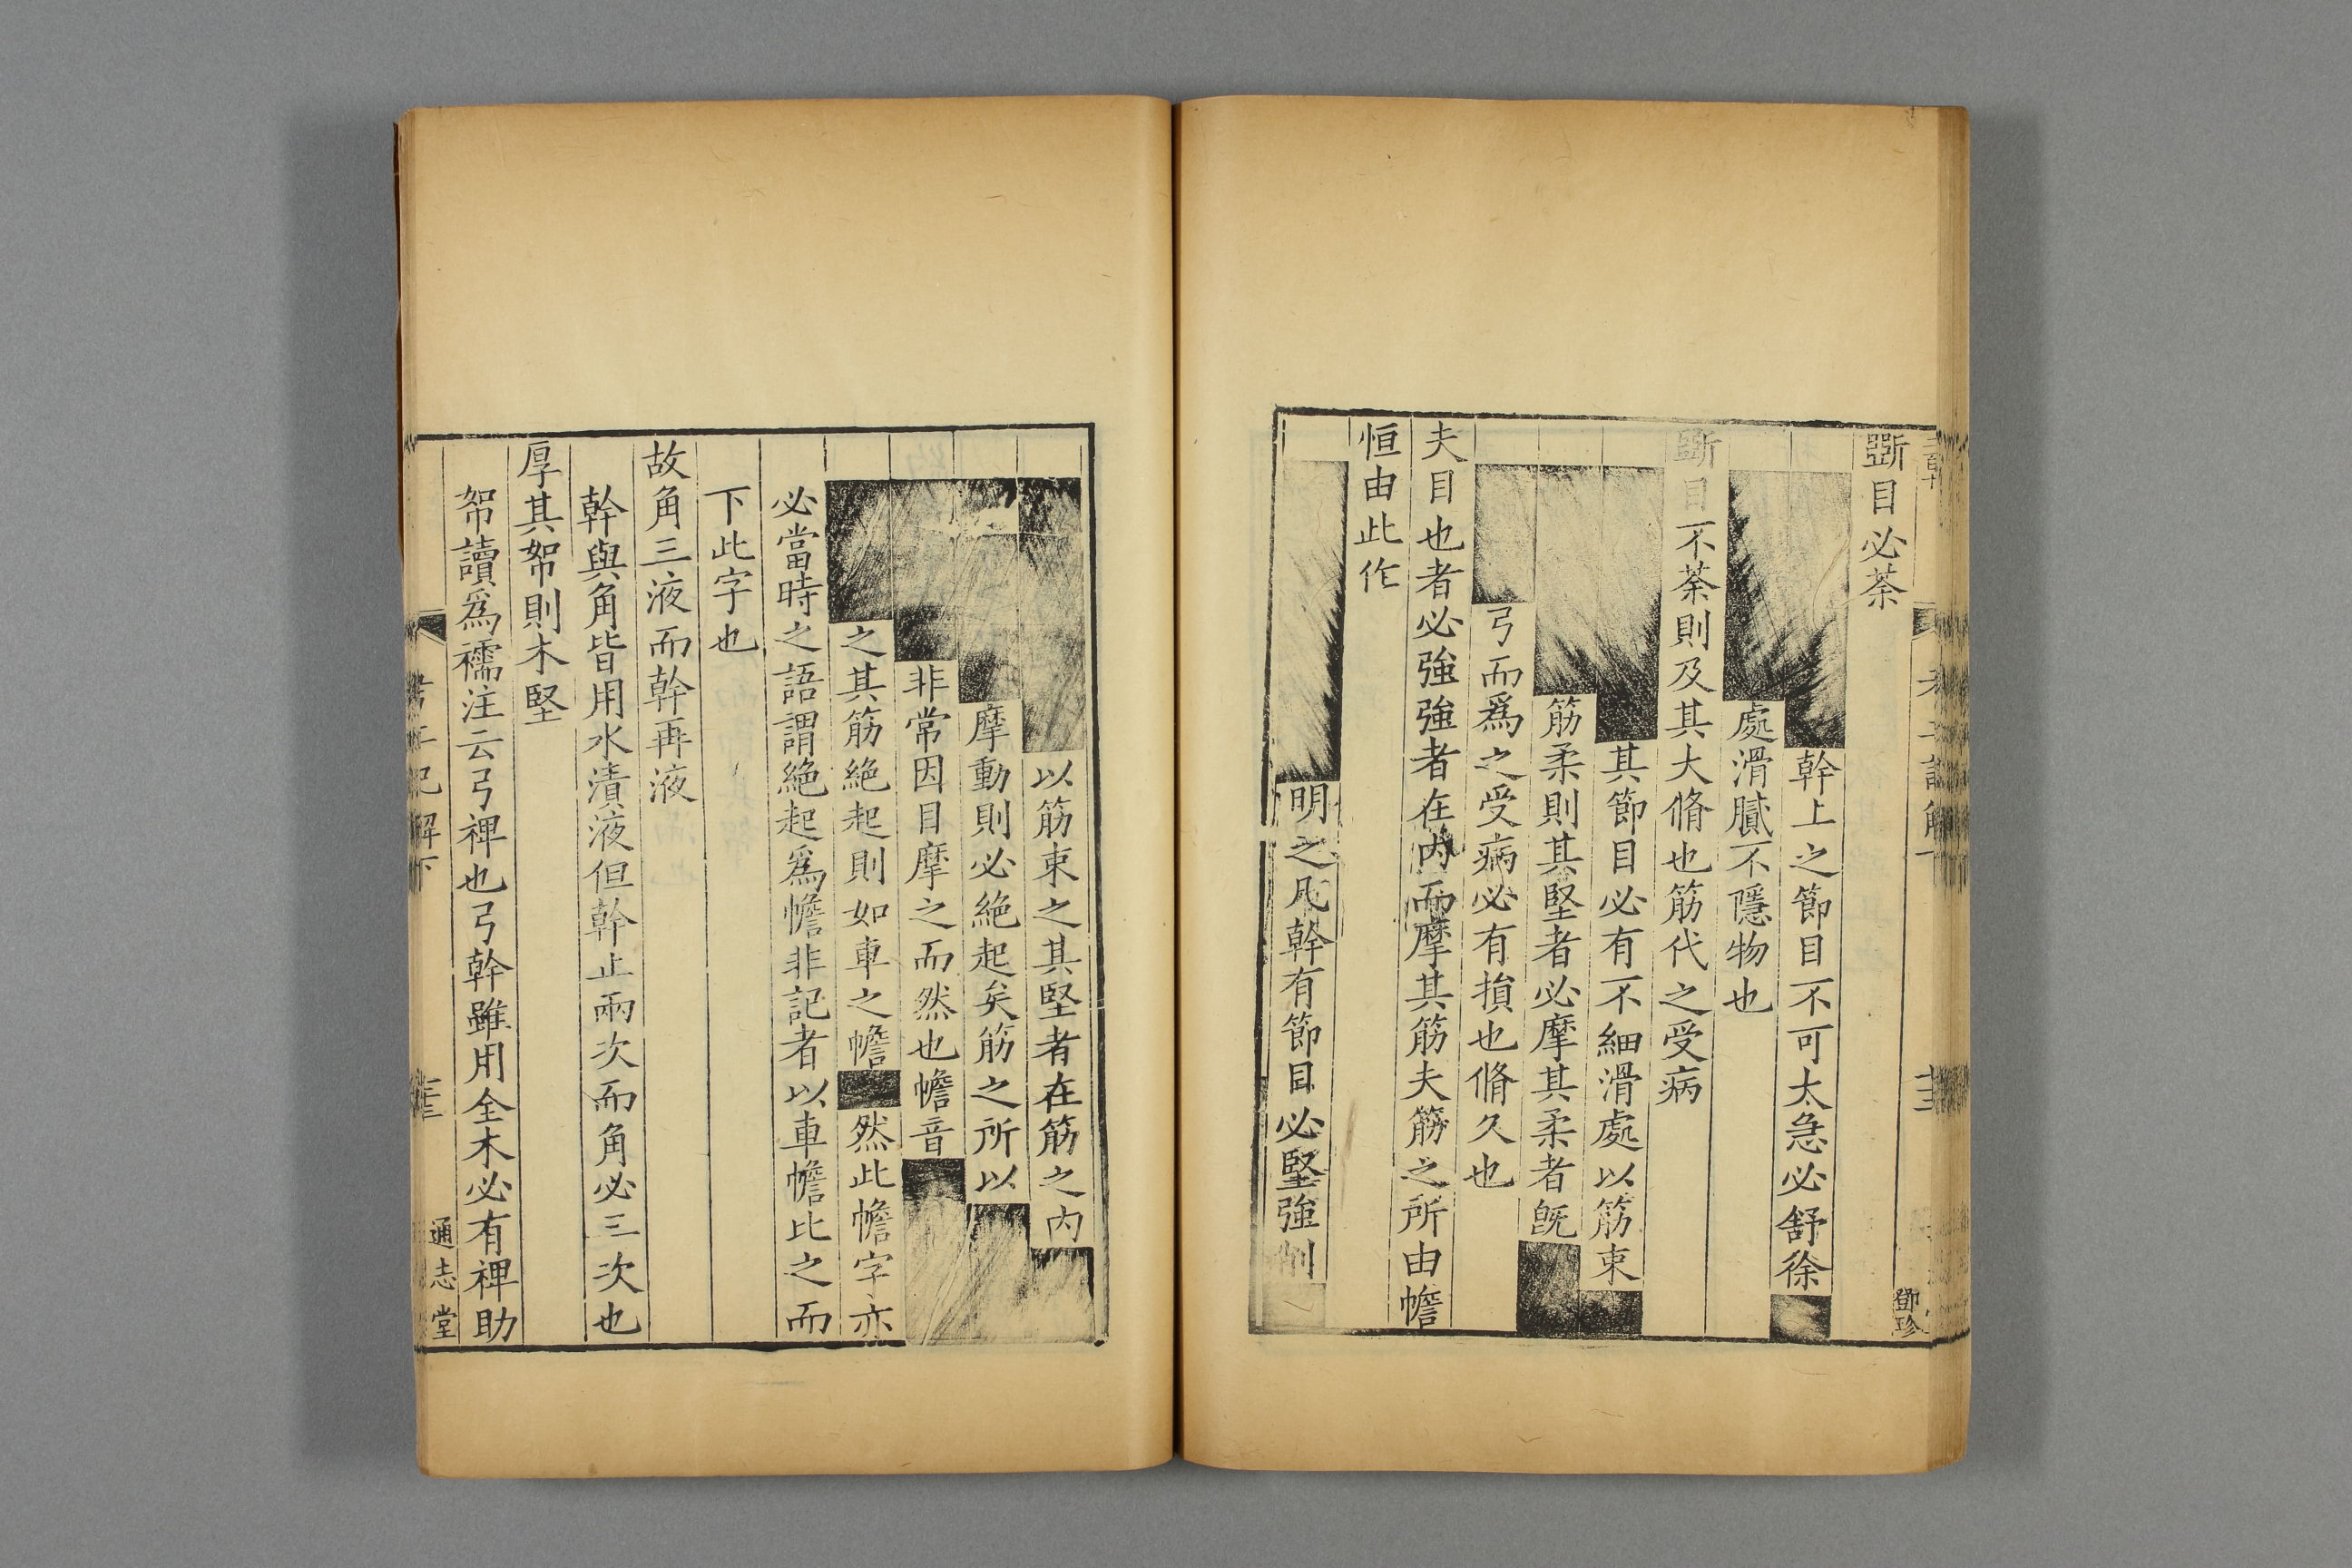 斲目必荼
幹上之節目不可太急必舒徐
處滑膩不隱物也
斲目不荼則及其大脩也筋代之受病
其節目必有不細滑處以筋束
筋柔則其堅者必摩其柔者旣
弓而爲之受病必有損也脩久也
夫目也者必強強者在内而摩其筋夫筋之所由幨
恒由此作
明之凡幹有節目必堅強削
鄧珍
以筋束之其堅者在筋之内
摩動則必絶起矣筋之所以
非常因目摩之而然也幨音
之其筋絶起則如車之幨 然此幨字亦
必當時之語謂絶起爲幨非記者以車幨比之而
下此字也
故角三液而幹再液
幹與角皆用水漬液但幹止兩次而角必三次也
厚其帤則木堅
帤讀爲襦注云弓裨也弓幹雖用全木必有裨助
考工記解下
通志堂